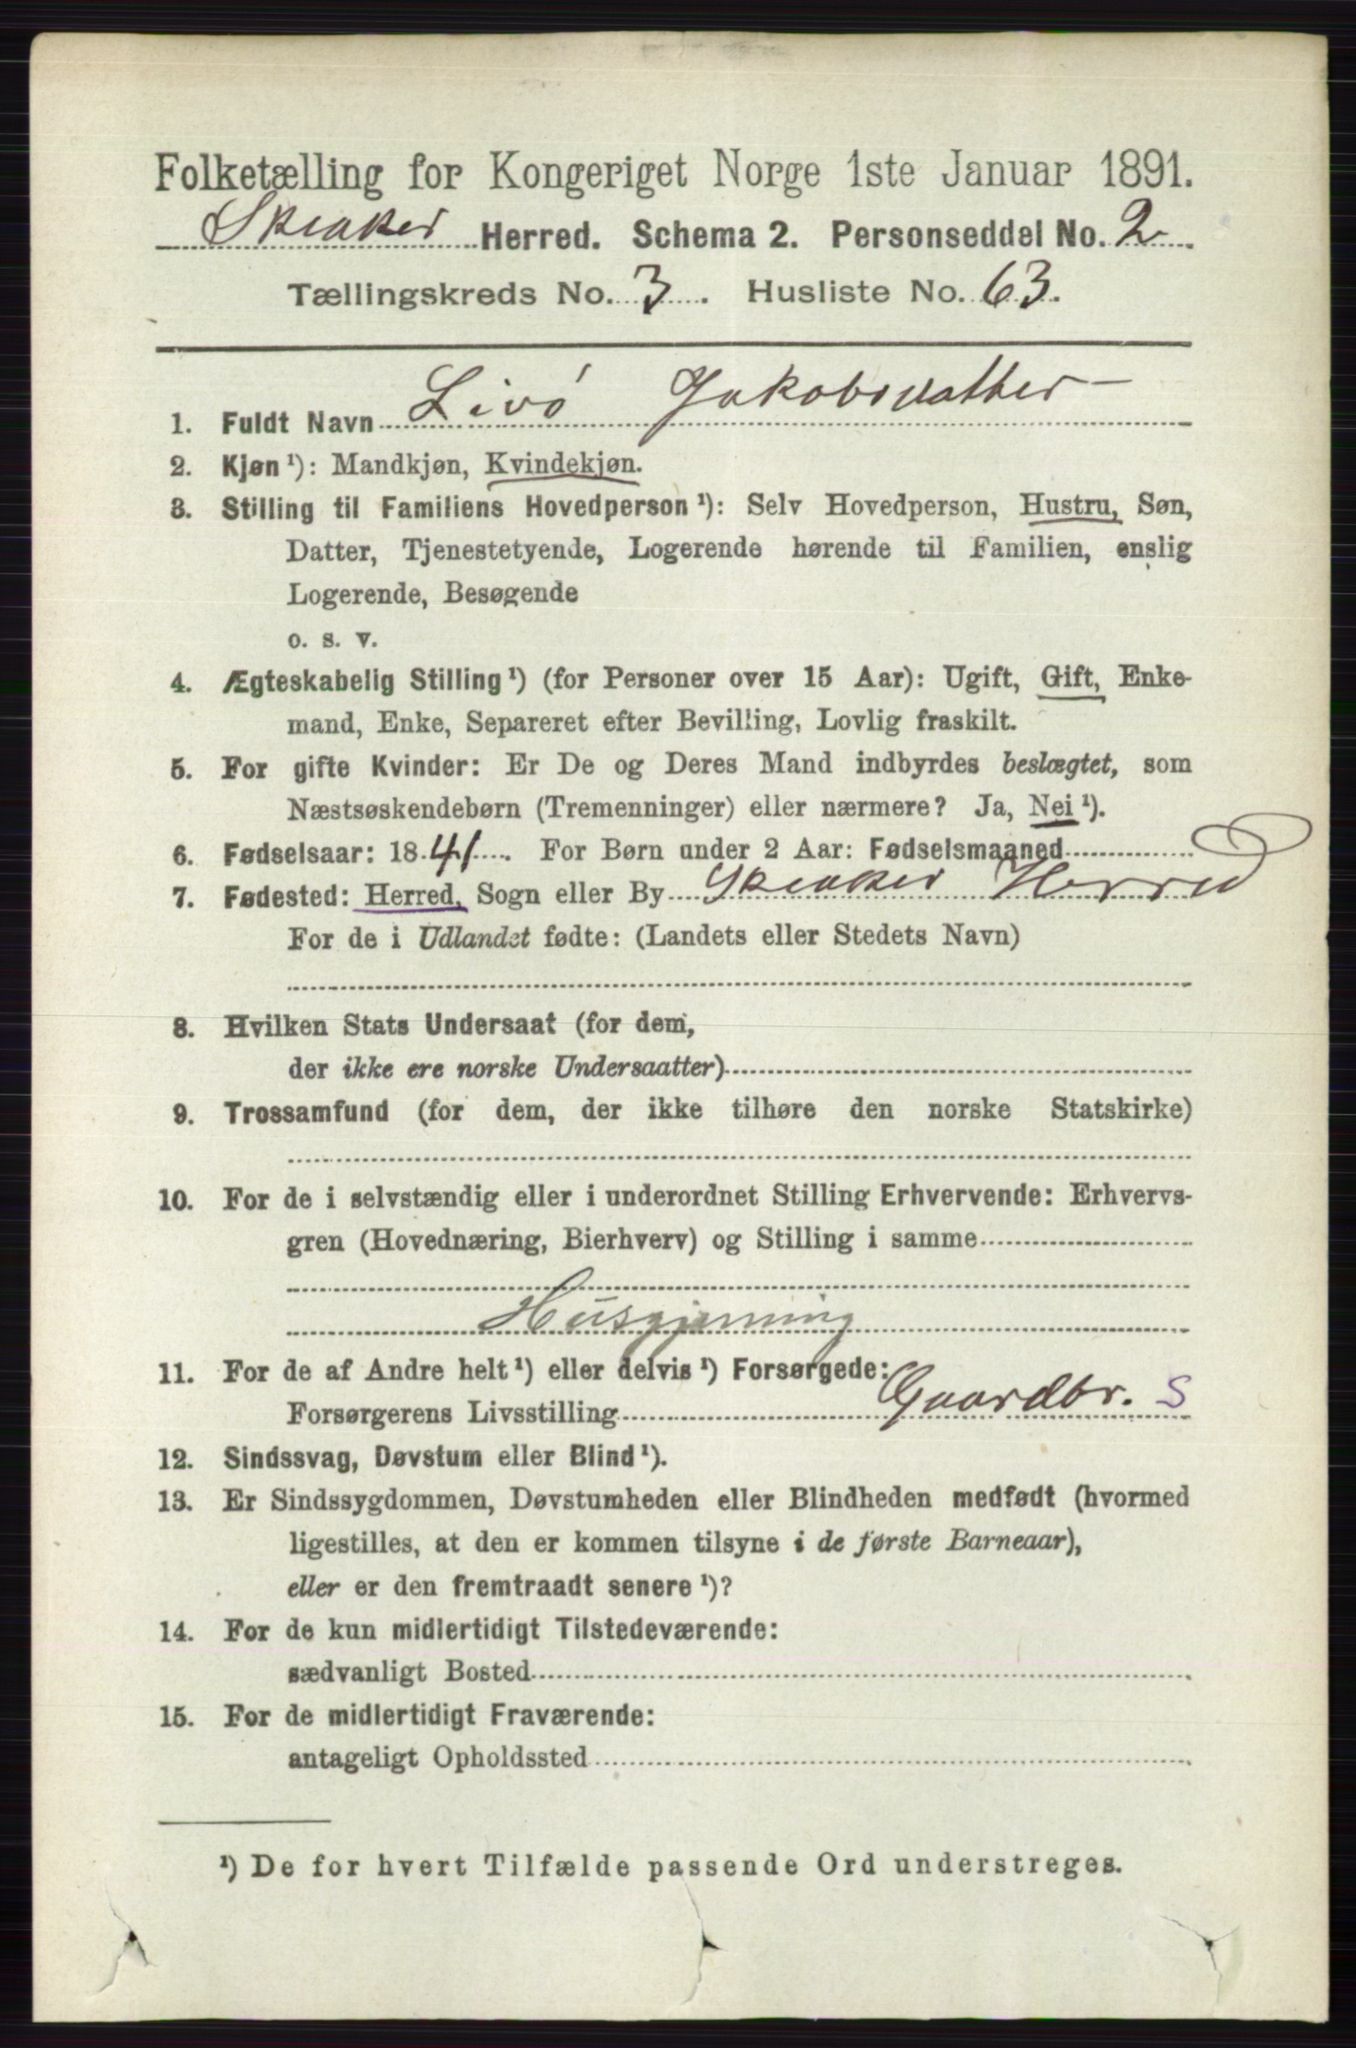 Folketælling for Kongeriget Norge 1ste Januar 1891.
Skeaker Herred. Schema 2. Personseddel No. 2
Tællingskreds No. 3. Husliste No. 63.
1. Fuldt Navn Livó Jakobsdatter
2. Kjøn¹): Mandkjøn, Kvindekjøn.
3. Stilling til Familiens Hovedperson¹): Selv Hovedperson, Hustru, Søn,
Datter, Tjenestetyende, Logerende hørende til Familien, enslig
Logerende, Besøgende
o. s. v.
4. Ægteskabelig Stilling¹) (for Personer over 15 Aar): Ugift, Gift, Enke-
mand, Enke, Separeret efter Bevilling, Lovlig fraskilt.
5. For gifte Kvinder: Er De og Deres Mand indbyrdes beslægtet, som
Næstsøskendebørn (Tremenninger) eller nærmere? Ja, Nei¹).
6. Fødselsaar: 1841. For Børn under 2 Aar: Fødselsmaaned
7. Fødested: Herred, Sogn eller By Skeaker Herred
For de i Udlandet fødte: (Landets eller Stedets Navn)
8. Hvilken Stats Undersaat (for dem,
der ikke ere norske Undersaatter)
9. Trossamfund (for dem, der ikke tilhøre den norske Statskirke)
10. For de i selvstændig eller i underordnet Stilling Erhvervende: Erhvervs-
gren (Hovednæring, Bierhverv) og Stilling i samme
Husgjerning
11. For de af Andre helt¹) eller delvis¹) Forsørgede:
Forsørgerens Livsstilling Gaardbr. S
12. Sindssvag, Døvstum eller Blind¹).
13. Er Sindssygdommen, Døvstumheden eller Blindheden medfødt (hvormed
ligestilles, at den er kommen tilsyne i de første Barneaar),
eller er den fremtraadt senere¹)?
14. For de kun midlertidigt Tilstedeværende:
sædvanligt Bosted
15. For de midlertidigt Fraværende:
antageligt Opholdssted
¹) De for hvert Tilfælde passende Ord understreges.